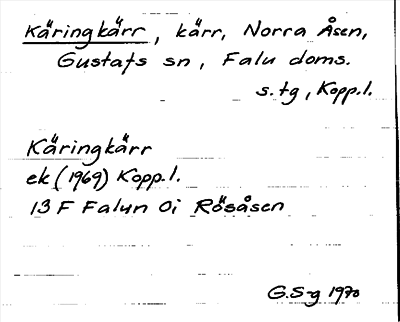 Käringkärr, kärr, Norra Åsen,
Gustafs sn, Falu doms.
s. tg, Kopp. l.
Käringkärr
ek (1969) Kopp. l.
13 F Falun 0i Rösåsen
G. S-g 1970